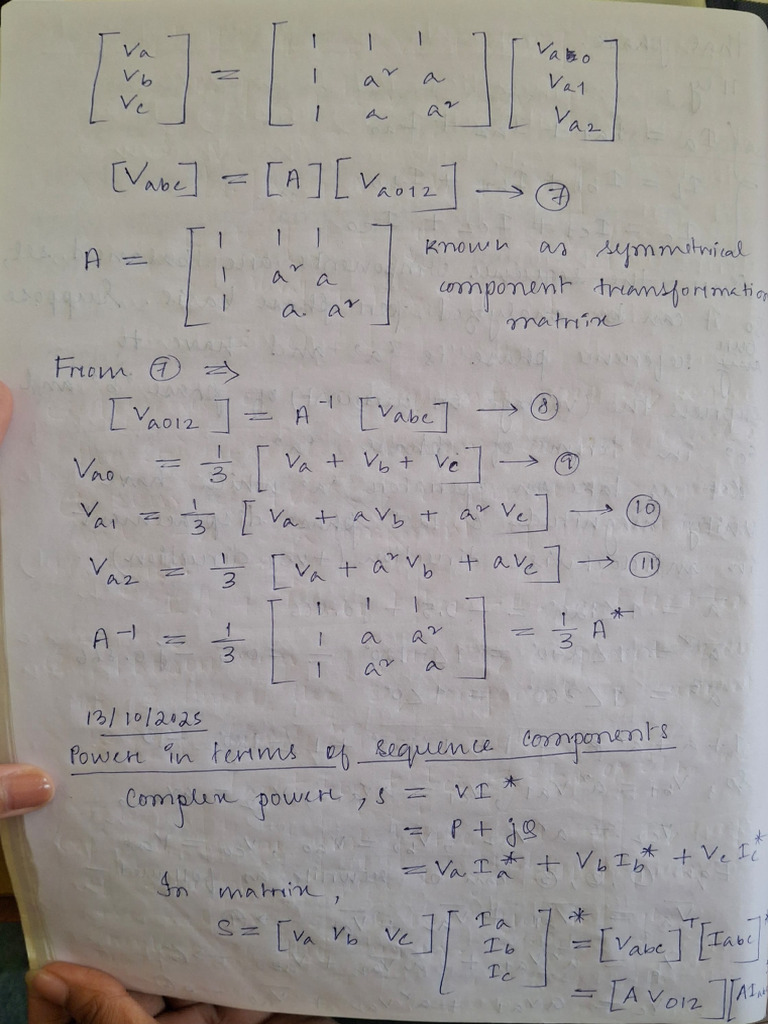 [Va Vb Vc] = [1 1 1; 1 a² a; 1 a a²] [Va0 Va1 Va2]
[Vabc] = [A] [Va012] → ⑦
A = [1 1 1; 1 a² a; 1 a a²] known as symmetrical
component transformation
matrix
From ⑦ ⇒
[Va012] = A⁻¹ [Vabc] → ⑧
Va0 = 1/3 [Va + Vb + Vc] → ⑨
Va1 = 1/3 [Va + aVb + a² Vc] → ⑩
Va2 = 1/3 [Va + a² Vb + aVc] → ⑪
A⁻¹ = 1/3 [1 1 1; 1 a a²; 1 a² a] = 1/3 A*
13/10/2025
Power in terms of sequence components
Complex power, S = VI*
= P + jQ
= Va Ia* + Vb Ib* + Vc Ic*
In matrix,
S = [Va Vb Vc] [Ia Ib Ic]* = [Vabc]ᵀ [Iabc]*
= [A V012] [A I